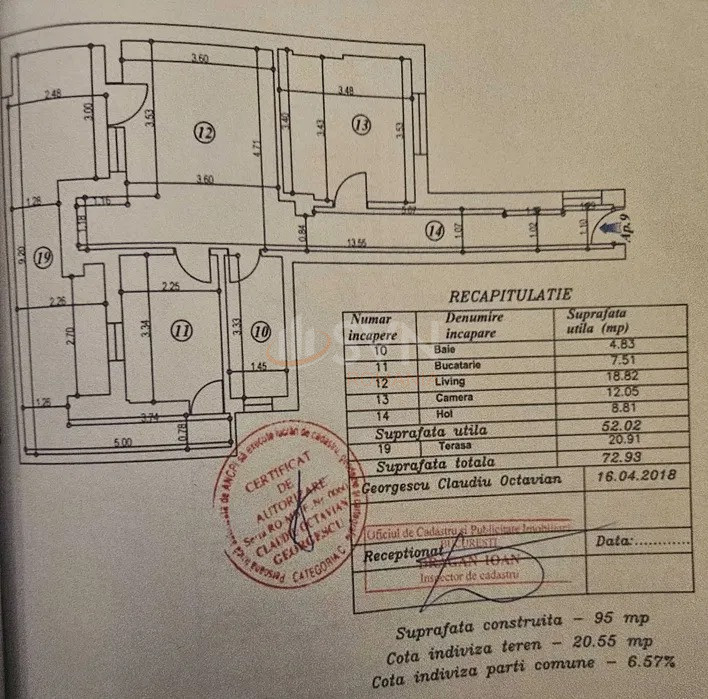 2.48
3.00
3.53
3.60
4.71
12
3.60
3.40
3.48
3.43
13
3.53
1.26
1.16
1.18
9.20
19
0.84
13.55
14
1.07
1.02
1.10
Ap.9
2.26
2.70
2.25
3.34
11
3.33
10
1.45
1.25
3.74
0.78
5.00
RECAPITULATIE
Numar incapere Denumire incapare Suprafata utila (mp)
10 Baie 4.83
11 Bucatarie 7.51
12 Living 18.82
13 Camera 12.05
14 Hol 8.81
Suprafata utila 52.02
19 Terasa 20.91
Suprafata totala 72.93
Georgescu Claudiu Octavian 16.04.2018
CERTIFICAT
DE
AUTORIZARE
CLAUDIU OCTAVIAN
GEORGESCU
CATEGORIA C
Oficiul de Cadastru si Publicitate Imobiliara
BUCURESTI
Receptionat Data:............
DRAGAN IOAN
Inspector de cadastru
Suprafata construita - 95 mp
Cota indiviza teren - 20.55 mp
Cota indiviza parti comune - 6.57%